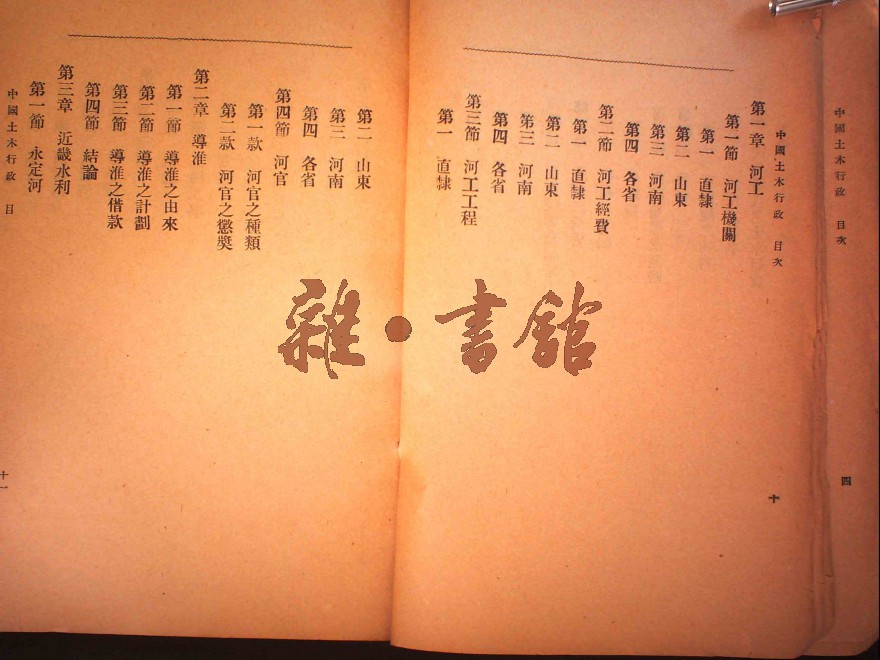 中國土木行政 目次
四
中國土木行政 目次
十
第一章 河工
第一節 河工機關
第一 直隸
第二 山東
第三 河南
第四 各省
第二節 河工經費
第一 直隸
第二 山東
第三 河南
第四 各省
第三節 河工工程
第一 直隸
第二 山東
第三 河南
第四 各省
第四節 河官
第一款 河官之種類
第二款 河官之懲奬
第二章 導淮
第一節 導淮之由來
第二節 導淮之計劃
第三節 導淮之借款
第四節 結論
第三章 近畿水利
第一節 永定河
中國土木行政 目
十一
雜·書館